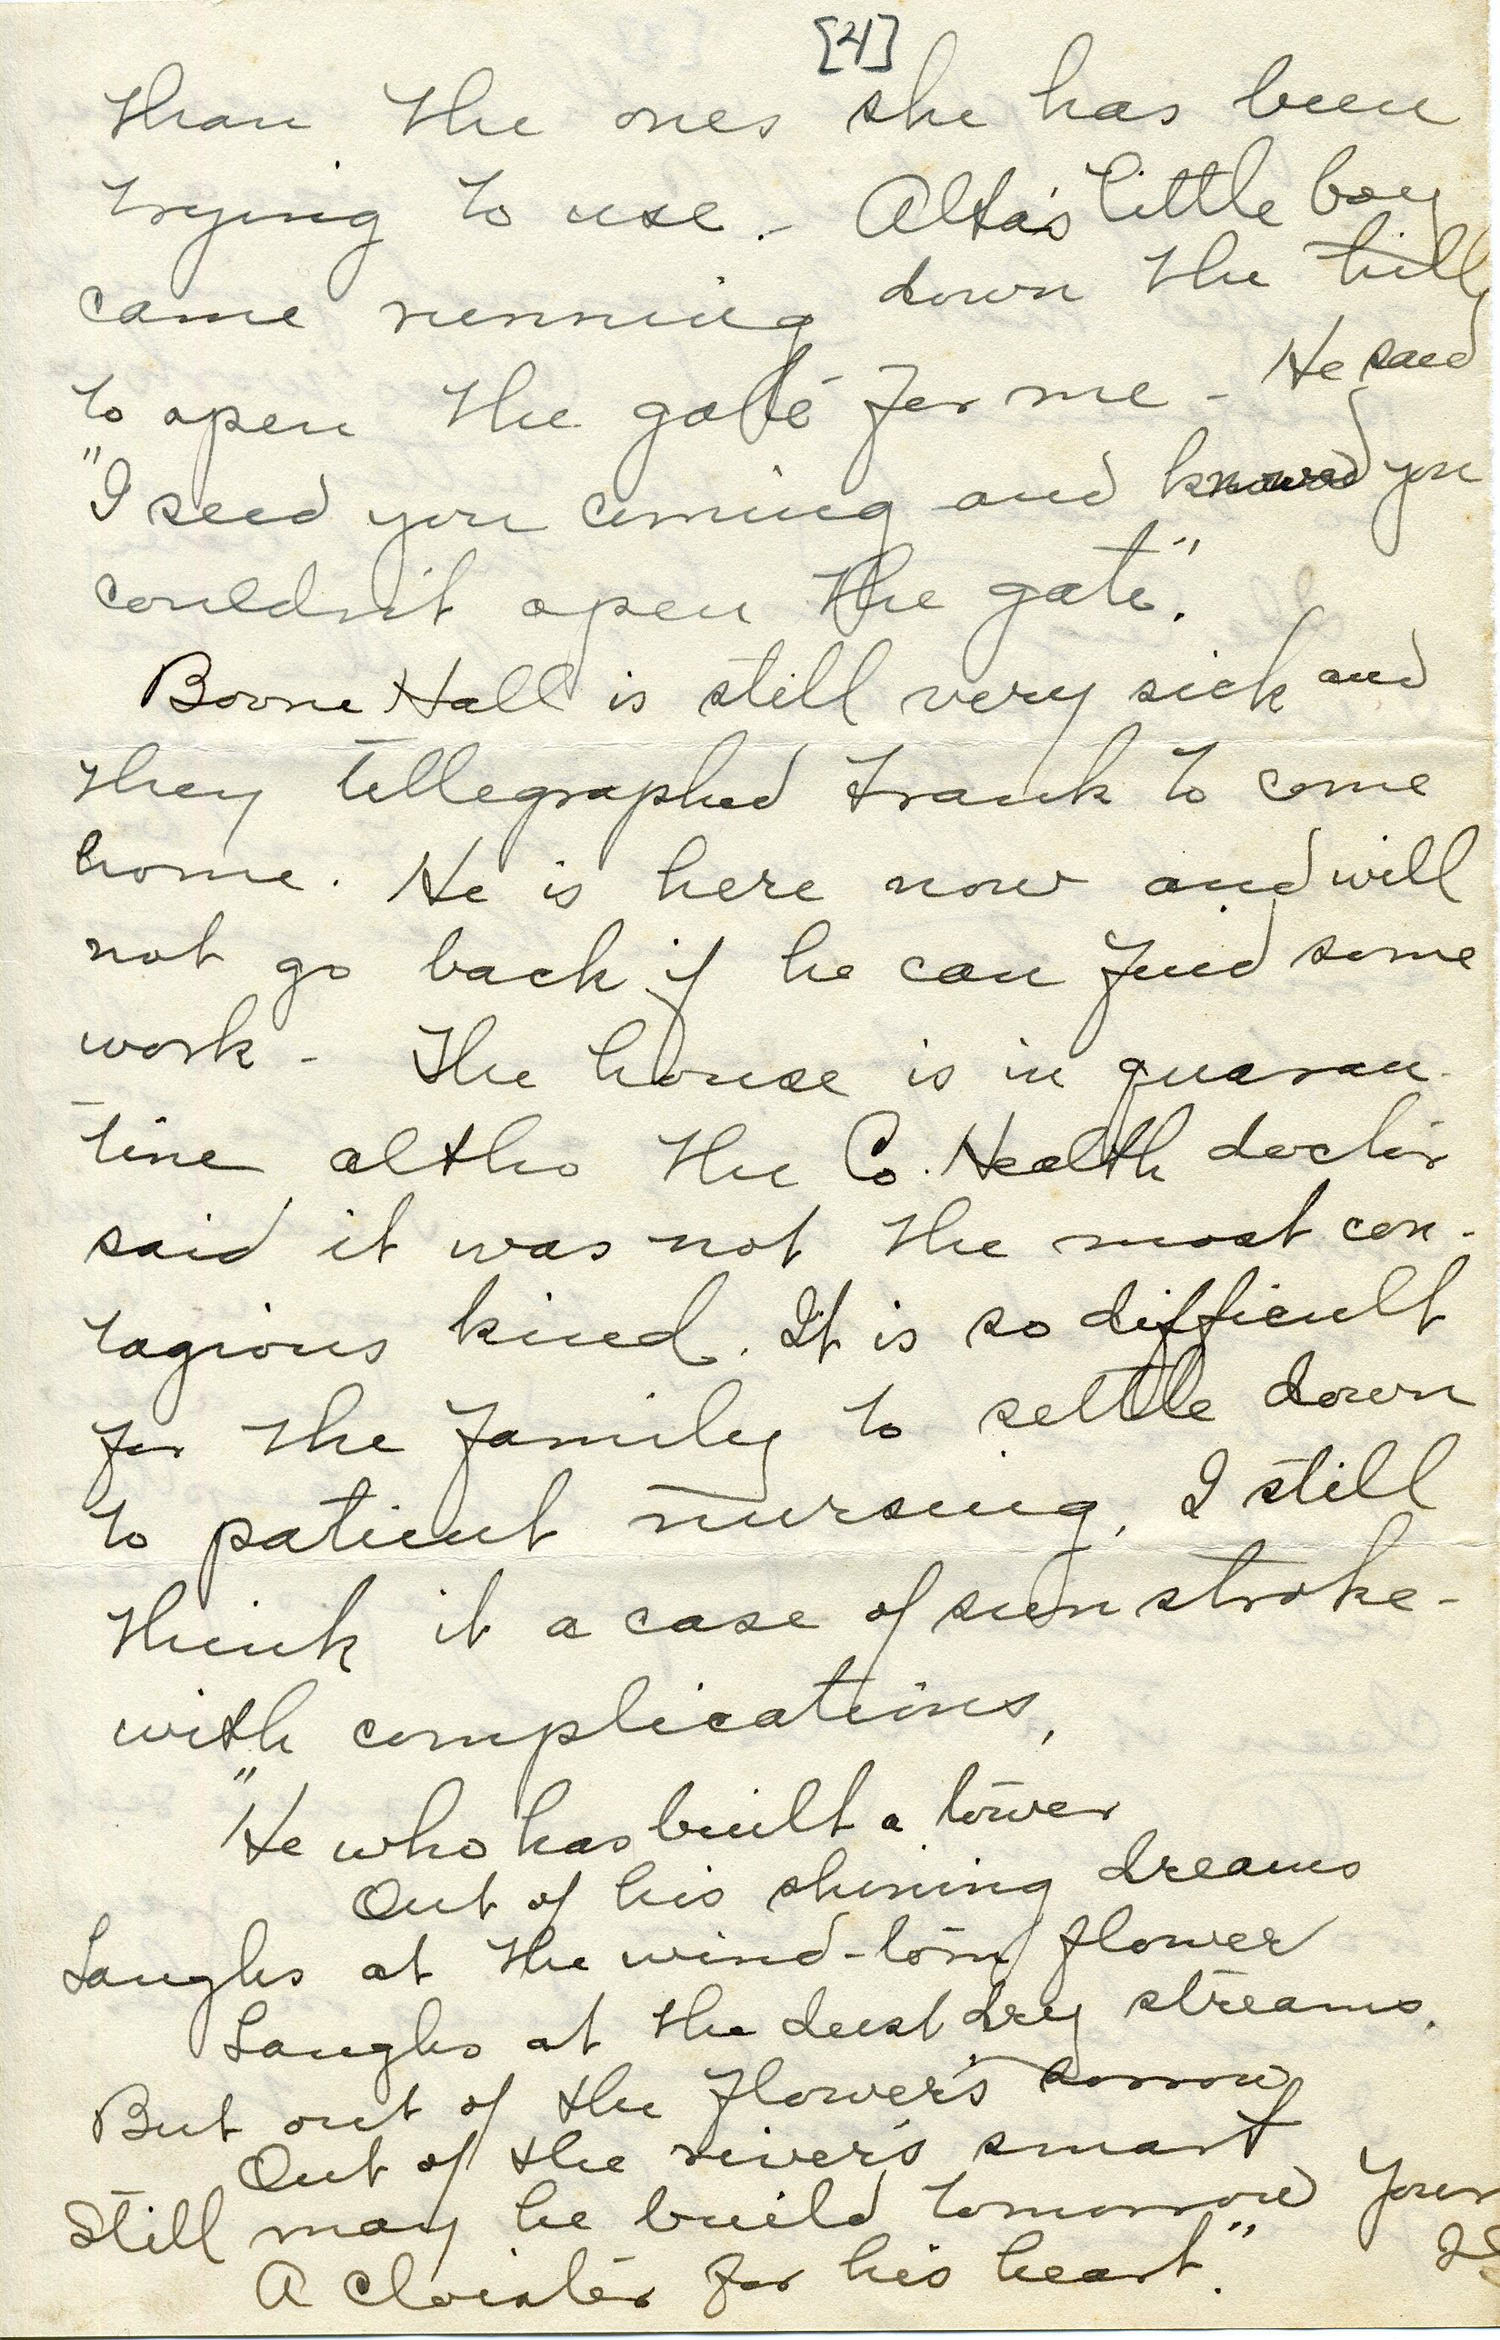 [4]
than the ones she has been
trying to use. - Alta's little boy
came running down the hill
to open the gate for me - He said
"I seed you coming and knowed you
couldn't open the gate."
Boone Hall is still very sick and
they tellegraphed Frank to come
home. He is here now and will
not go back if he can find some
work - The house is in quaran-
tine altho the Co. Health doctor
said it was not the most con-
tagious kind. It is so difficult
for the family to settle down
to patient nursing. I still
think it a case of sun stroke -
with complications.
"He who has built a tower
Out of his shining dreams
Laughs at the wind-torn flower
Laughs at the dust dry streams.
But out of the flower's sorrow
Out of the river's smart
Still may he build tomorrow
A cloister for his heart."
Your